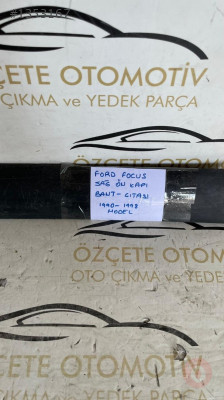 ÖZÇETE OTOMOTİV
ÇIKMA ve YEDEK PARÇA
FORD FOCUS
SAĞ ÖN KAPI
BANT-ÇITASI
1990-1998
MODEL
ÖZÇETE OTOMOTİV
OTO ÇIKMA ve YEDEK PARÇA
ÖZÇETE OTOMOTİV